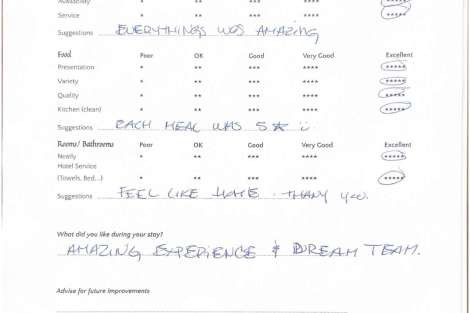 Availability * ** *** **** *****
Service * ** *** **** *****
Suggestions EVERYTHINGS WAS AMAZING
Food Poor OK Good Very Good Excellent
Presentation * ** *** **** *****
Variety * ** *** **** *****
Quality * ** *** **** *****
Kitchen (clean) * ** *** **** *****
Suggestions EACH MEAL WAS 5☆
Rooms/ Bathrooms Poor OK Good Very Good Excellent
Neatly * ** *** **** *****
Hotel Service
(Towels, Bed...) * ** *** **** *****
Suggestions FEEL LIKE HOME . THANY YOU.
What did you like during your stay?
AMAZING EXPERIENCE & DREAM TEAM.
Advise for future improvements